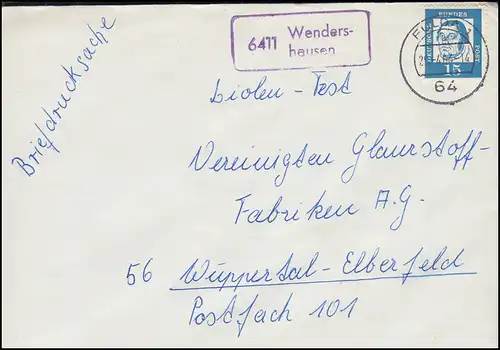 Briefdrucksache
6411 Wenders-
hausen
DEUTSCHE BUNDESPOST
15
FULDA
64
Diolen-Test
Vereinigten Glanzstoff-
Fabriken A.G.
56 Wuppertal-Elberfeld
Postfach 101